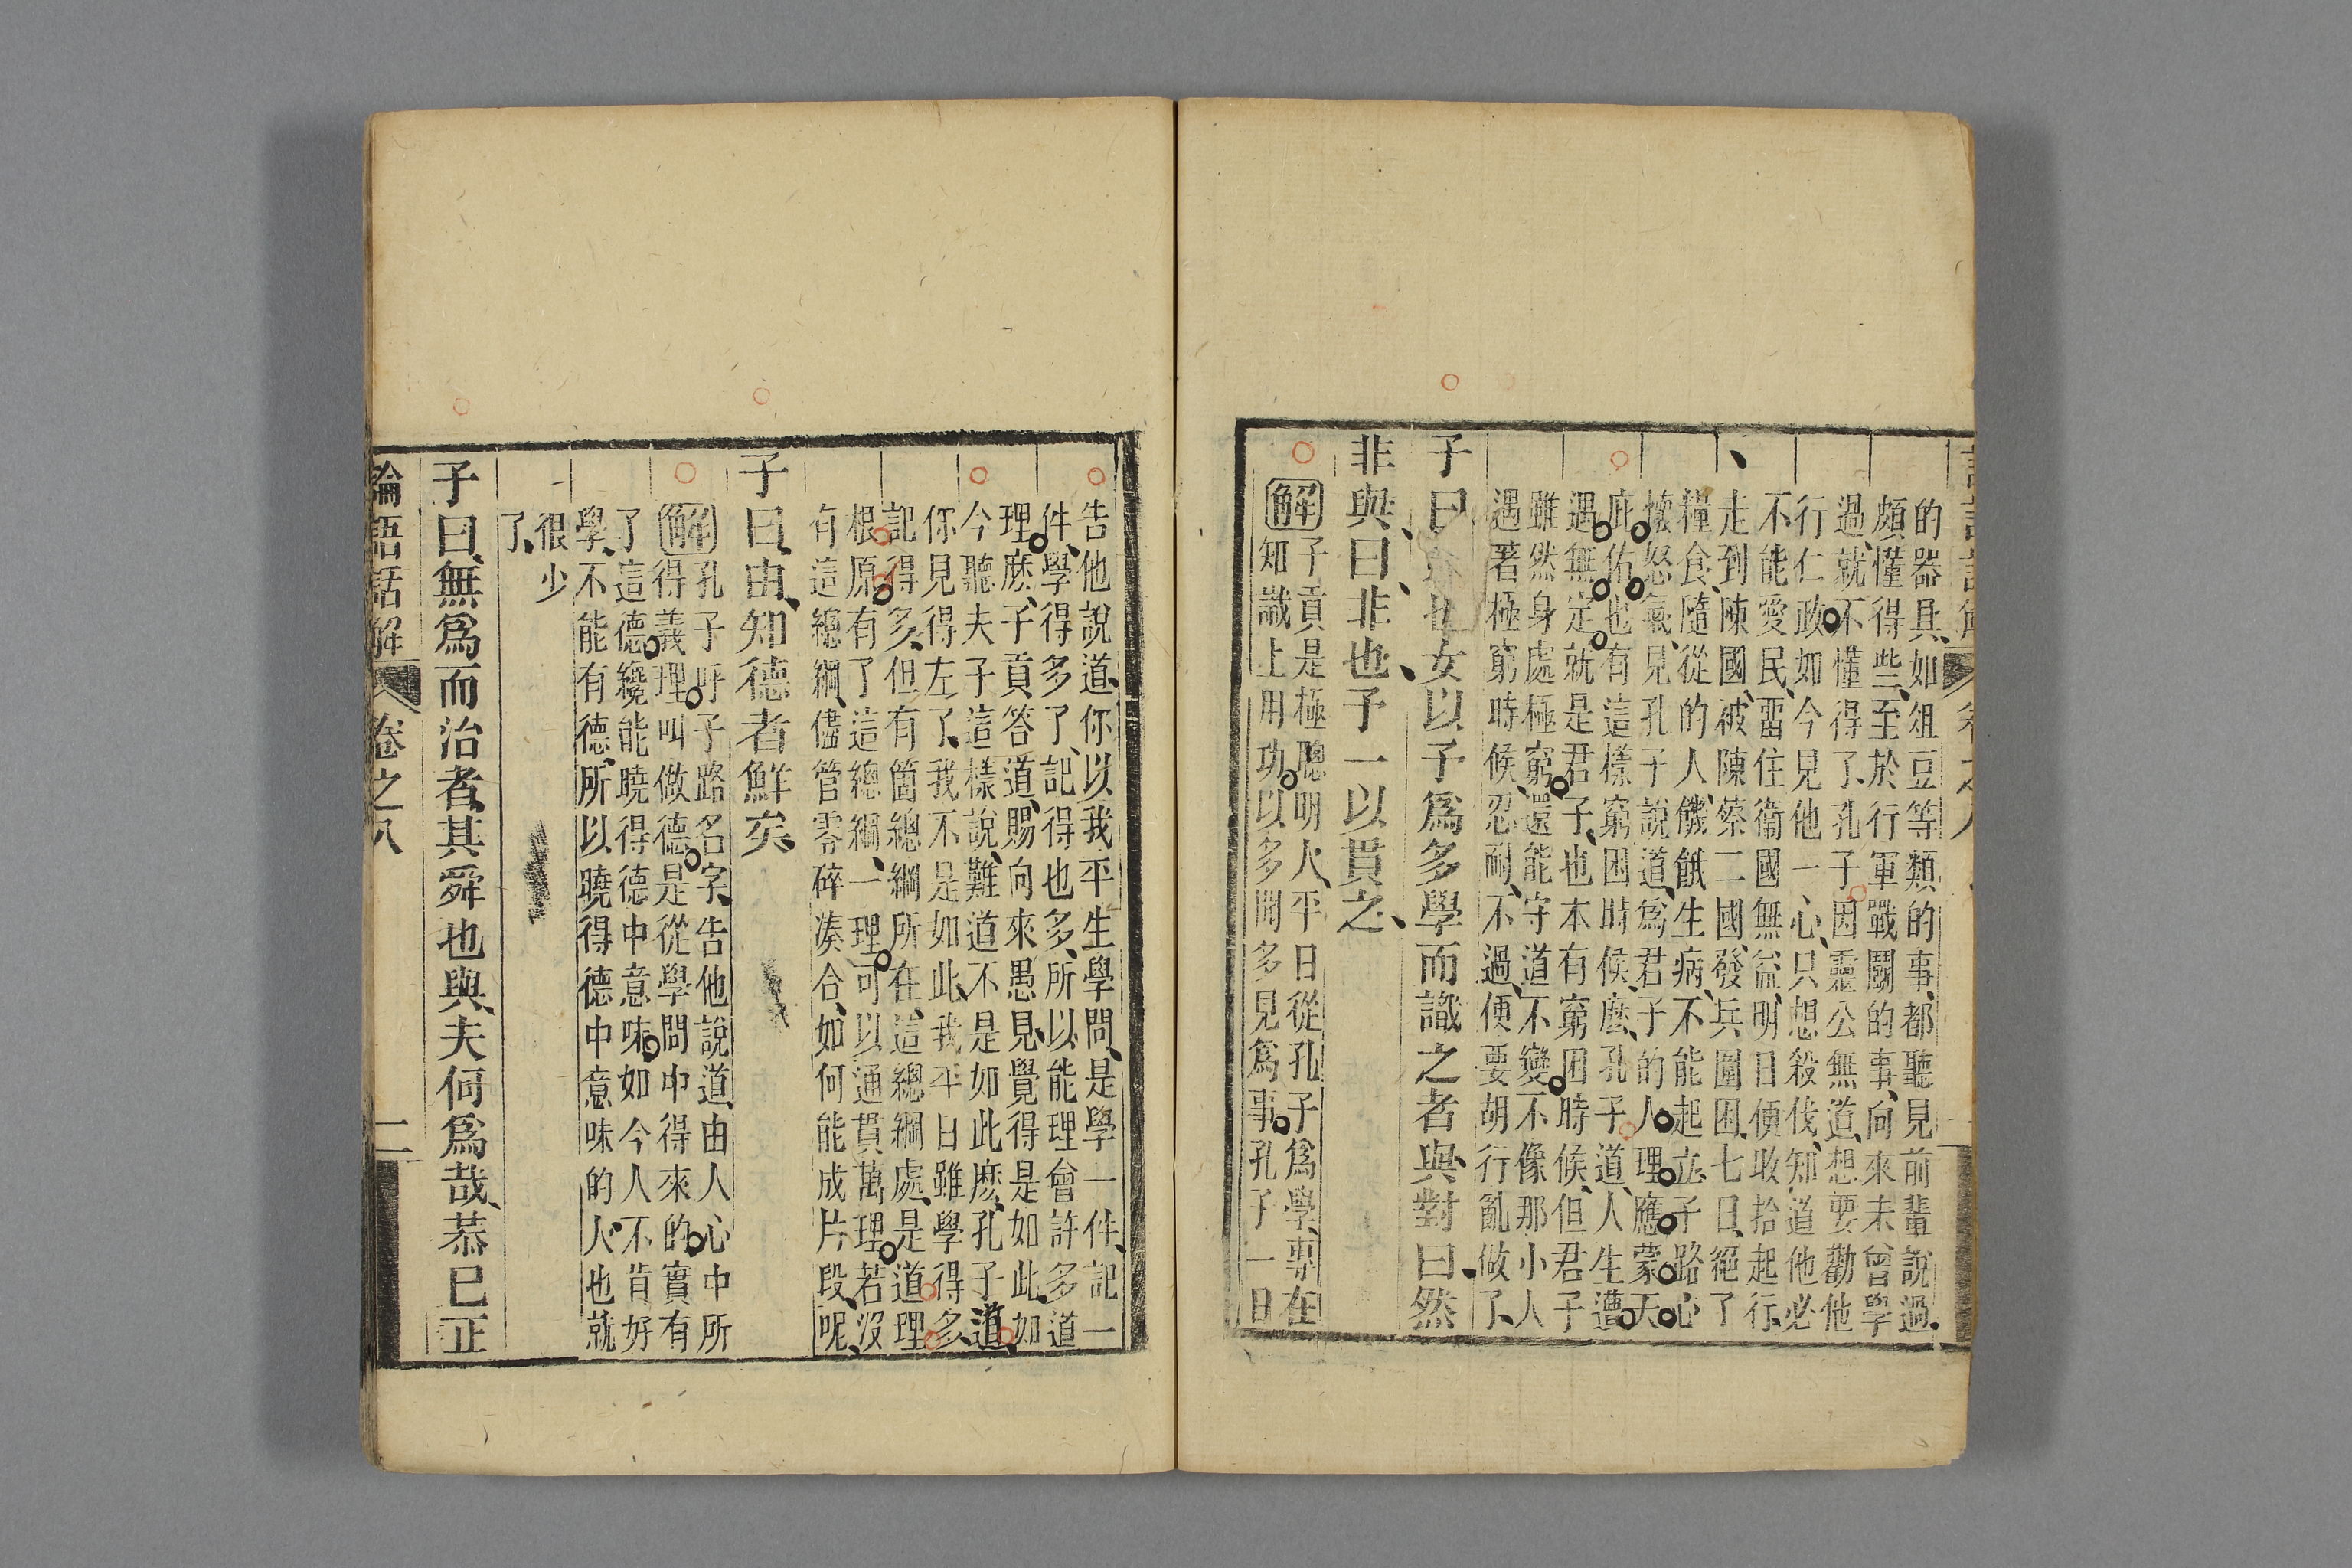 的器具、如俎豆等類的事、都聽見前輩說過、
頗懂得些、至於行軍戰鬬的事、向來未曾學
過、就不懂得了、孔子因靈公無道、想要勸他
行仁政、如今見他一心、只想殺伐、知道他必
不能愛民、畱住衞國無益、明日便收拾起行、
走到陳國、被陳蔡二國、發兵圍困、七日、絕了
糧食、隨從的人、餓生病、不能起立、子路心
懷怒氣、見孔子說道、爲君子的人、理應蒙天
庇佑、也有這樣窮困時候麽、孔子道、人生遭
遇無定、就是君子、也本有窮困時候、但君子
雖然身處極窮、還能守道不變、不像那小人
遇著極窮時候、忍耐不過、便要胡行亂做了、
子曰也女以予爲多學而識之者與、對曰、然
非與、曰、非也、予一以貫之、
解子貢是極聰明人、平日從孔子爲學、專在
知識上用功、以多聞多見爲事、孔子一日
告他說道、你以我平生學問、是學一件、記一
件、學得多了、記得也多、所以能理會許多道
理麽、子貢答道、賜向來愚見、覺得是如此、如
今聽夫子這樣說、難道不是如此麽、孔子道、
你見得左了、我不是如此、我平日雖學得多、
記得多、但有箇總綱所在、這總綱處、是道理
根原、有了這總綱、一理可以通貫萬理、若沒
有這總綱、儘管零碎湊合、如何能成片段呢、
子曰、由、知德者鮮矣、
解孔子呼子路名字、告他說道、由、人心中所
得義理、叫做德、是從學問中得來的、實有
了這德、纔能曉得德中意味、如今人不肯好
學、不能有德、所以曉得德中意味的人、也就
很少
了、
子曰、無爲而治者、其舜也與、夫何爲哉、恭己正
論語話解 卷之八 二